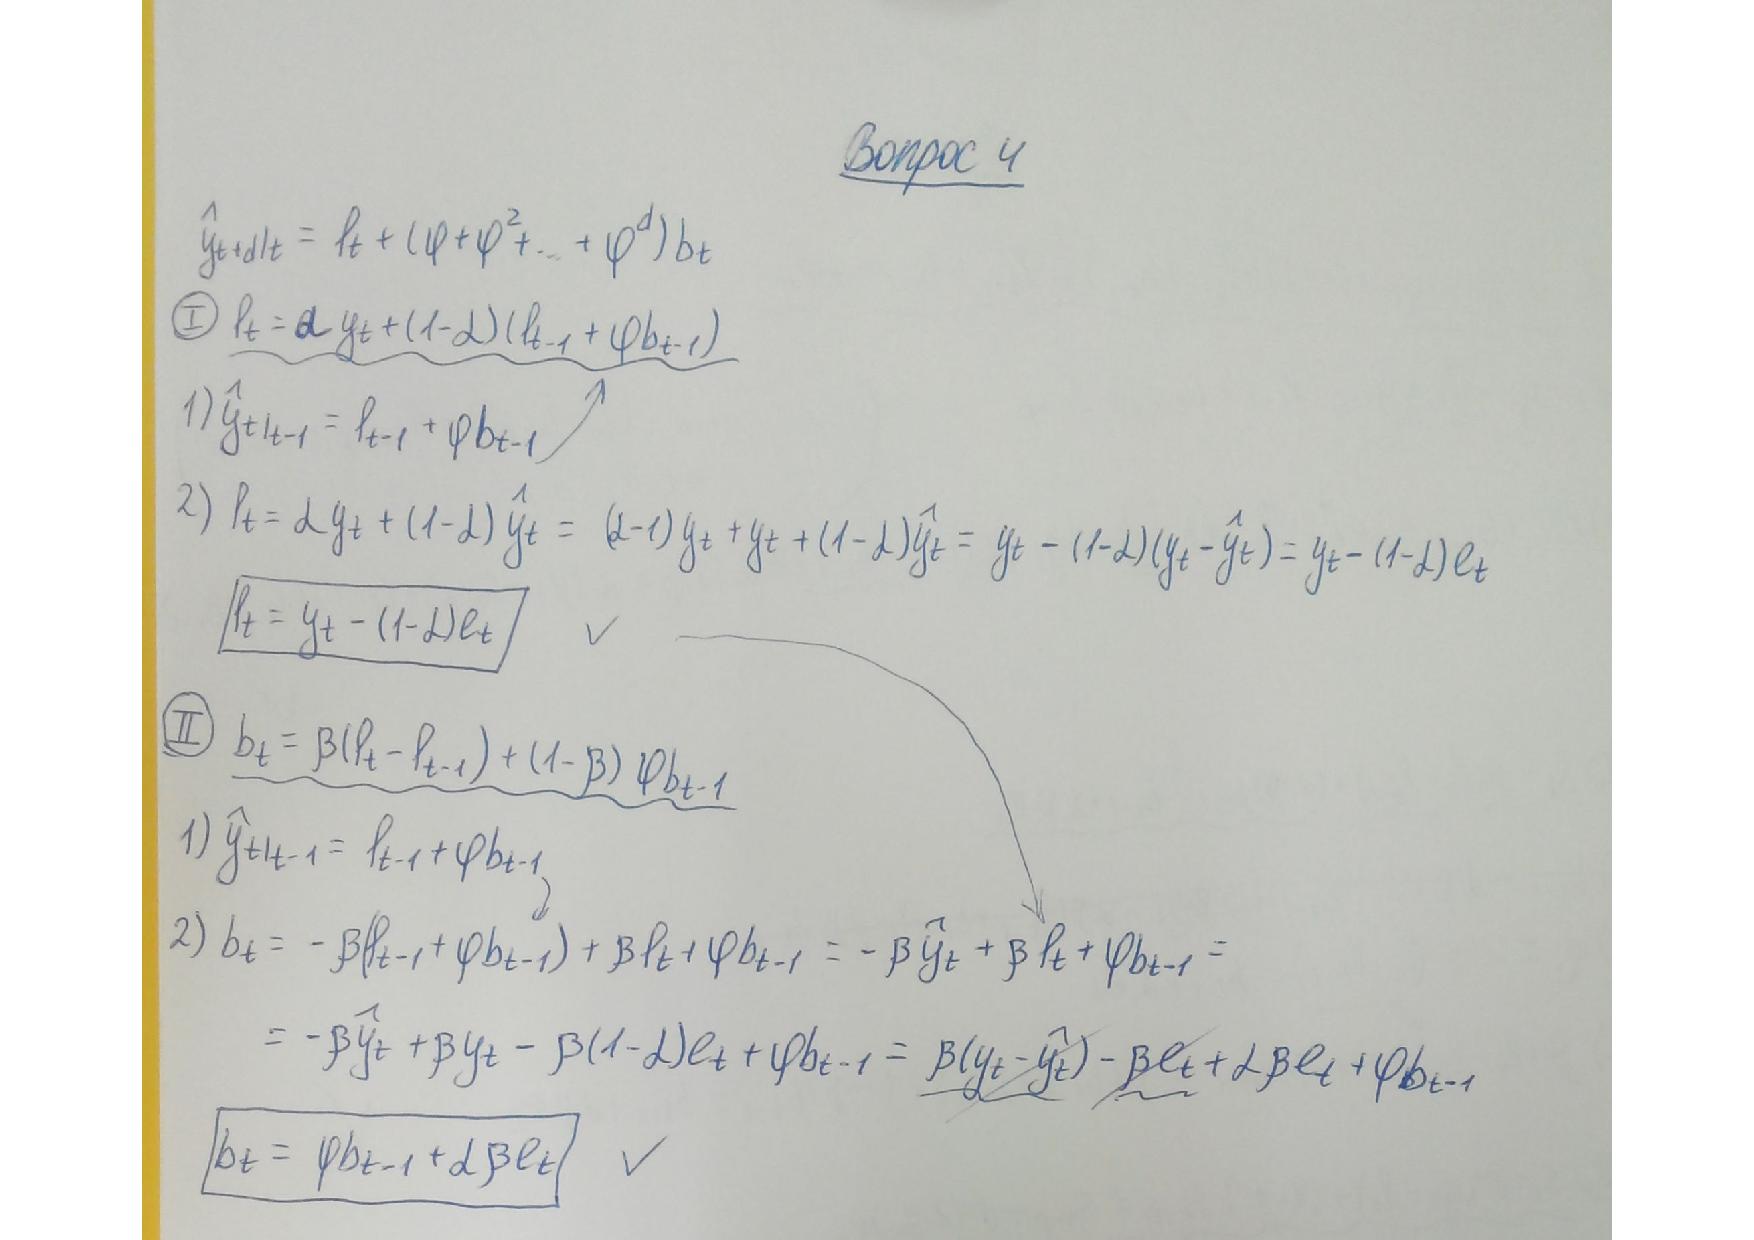 Вопрос 4
ŷ_{t+d|t} = l_t + (φ + φ² + ... + φ^d) b_t
Ⓘ l_t = α y_t + (1-α)(l_{t-1} + φb_{t-1})
1) ŷ_{t|t-1} = l_{t-1} + φb_{t-1}
2) l_t = αy_t + (1-α)ŷ_t = (α-1)y_t + y_t + (1-α)ŷ_t = y_t - (1-α)(y_t - ŷ_t) = y_t - (1-α)e_t
l_t = y_t - (1-α)e_t ✓
Ⅱ b_t = β(l_t - l_{t-1}) + (1-β) φb_{t-1}
1) ŷ_{t|t-1} = l_{t-1} + φb_{t-1}
2) b_t = -β(l_{t-1} + φb_{t-1}) + βl_t + φb_{t-1} = -βŷ_t + βl_t + φb_{t-1} =
= -βŷ_t + βy_t - β(1-α)e_t + φb_{t-1} = β(y_t - ŷ_t) - βe_t + αβe_t + φb_{t-1}
b_t = φb_{t-1} + αβe_t ✓